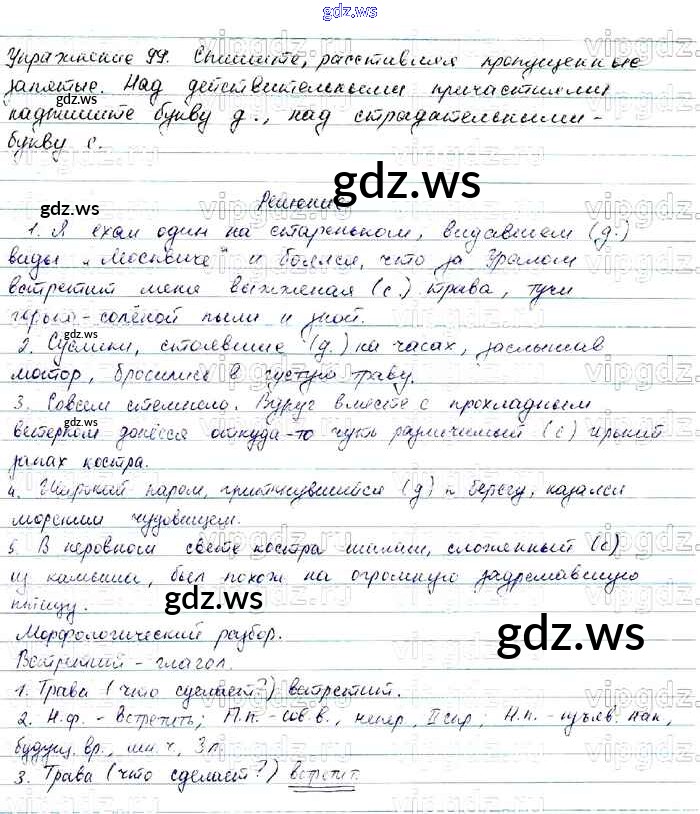 gdz.ws
Упражнение 99. Спишите, расставляя пропущенные
запятые. Над действительными причастиями
надпишите букву д., над страдательными -
букву с.
gdz.ws
Решение
gdz.ws
1. Я ехал один на стареньком, видавшем (д.)
виды „Москвиче" и боялся, что за Уралом
встретит меня выжженая (с.) трава, тучи
горько-солёной пыли и зной.
gdz.ws
2. Суслики, стоявшие (д.) на часах, заслышав
мотор, бросились в густую траву.
3. Совсем стемнело. Вдруг вместе с прохладным
ветерком донёсся откуда-то чуть различимый (с) горький
запах костра.
gdz.ws
4. Широкий паром, приткнувшийся (д) к берегу, казался
морским чудовищем.
5. В неровном свете костра шалаш, сложенный (с)
из камыша, был похож на огромную задремавшую
птицу.
gdz.ws
Морфологический разбор.
gdz.ws
Встретит - глагол.
1. Трава (что сделает?) встретит.
2. Н.ф. - встретить; П.п. - сов.в., непер, II спр; Н.п. - изъяв. нак,
будущ. вр., ин. ч, 3л.
3. Трава (что сделает?) встретит.
gdz.ws